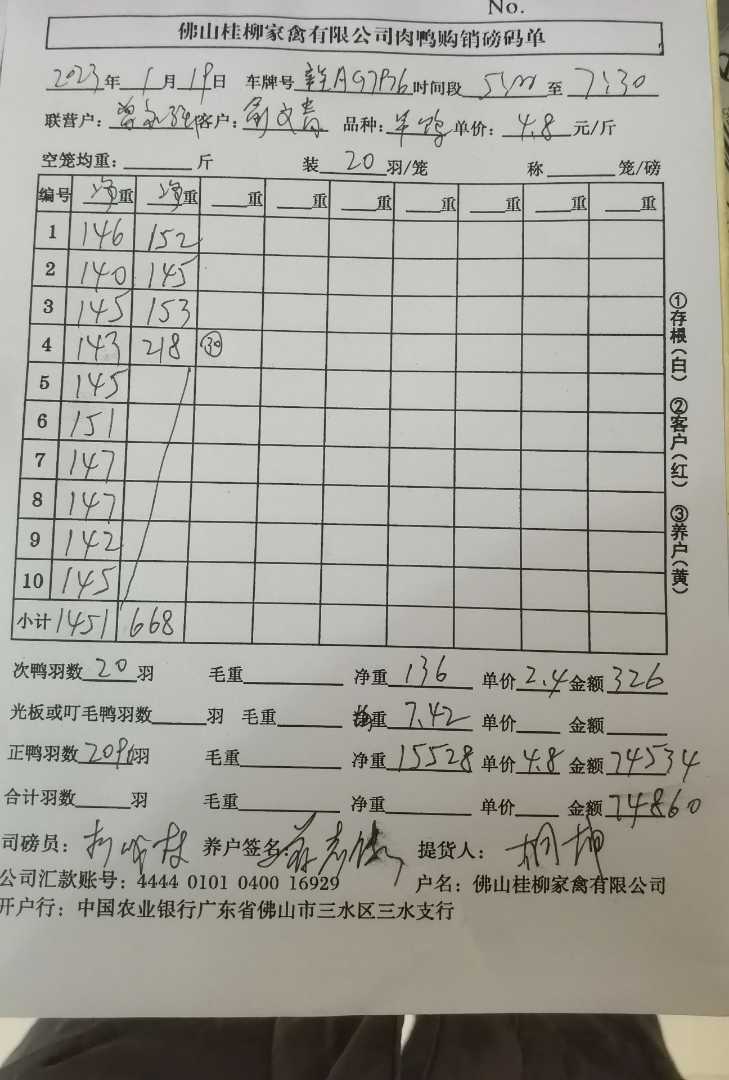 No.
佛山桂柳家禽有限公司肉鸭购销磅码单
2023年1月19日 车牌号 AG7B6 时间段 5:00 至 7:30
联营户： 客户：刘文青 品种： 单价：4.8元/斤
空笼均重：斤 装20羽/笼 称 笼/磅
编号 净重 净重 重 重 重 重 重 重 重
1 146 152
2 140 145
3 145 153
4 143 218 30
5 145
6 151
7 147
8 147
9 142
10 145
小计 1451 668
次鸭羽数20羽 毛重 净重136 单价2.4 金额326
光板或叮毛鸭羽数 羽 毛重 重7.42 单价 金额
正鸭羽数2090羽 毛重 净重15528 单价4.8 金额74534
合计羽数 羽 毛重 净重 单价 金额74860
司磅员： 养户签名： 提货人：
公司汇款账号：4444 0101 0400 16929 户名：佛山桂柳家禽有限公司
开户行：中国农业银行广东省佛山市三水区三水支行
①存根（白） ②客户（红） ③养户（黄）